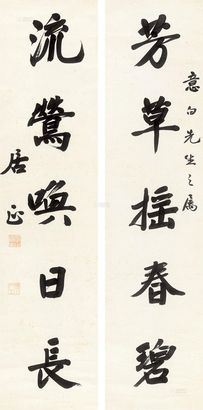 芳草摇春碧
意白先生之属
流鶯喚日長
居正